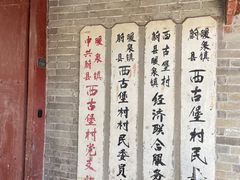 中共蔚县
暖泉镇
西古堡村党支
蔚县
暖泉镇
西古堡村村民委员
蔚县暖泉镇
西古堡村
经济联合服务
蔚县
暖泉镇
西古堡村民